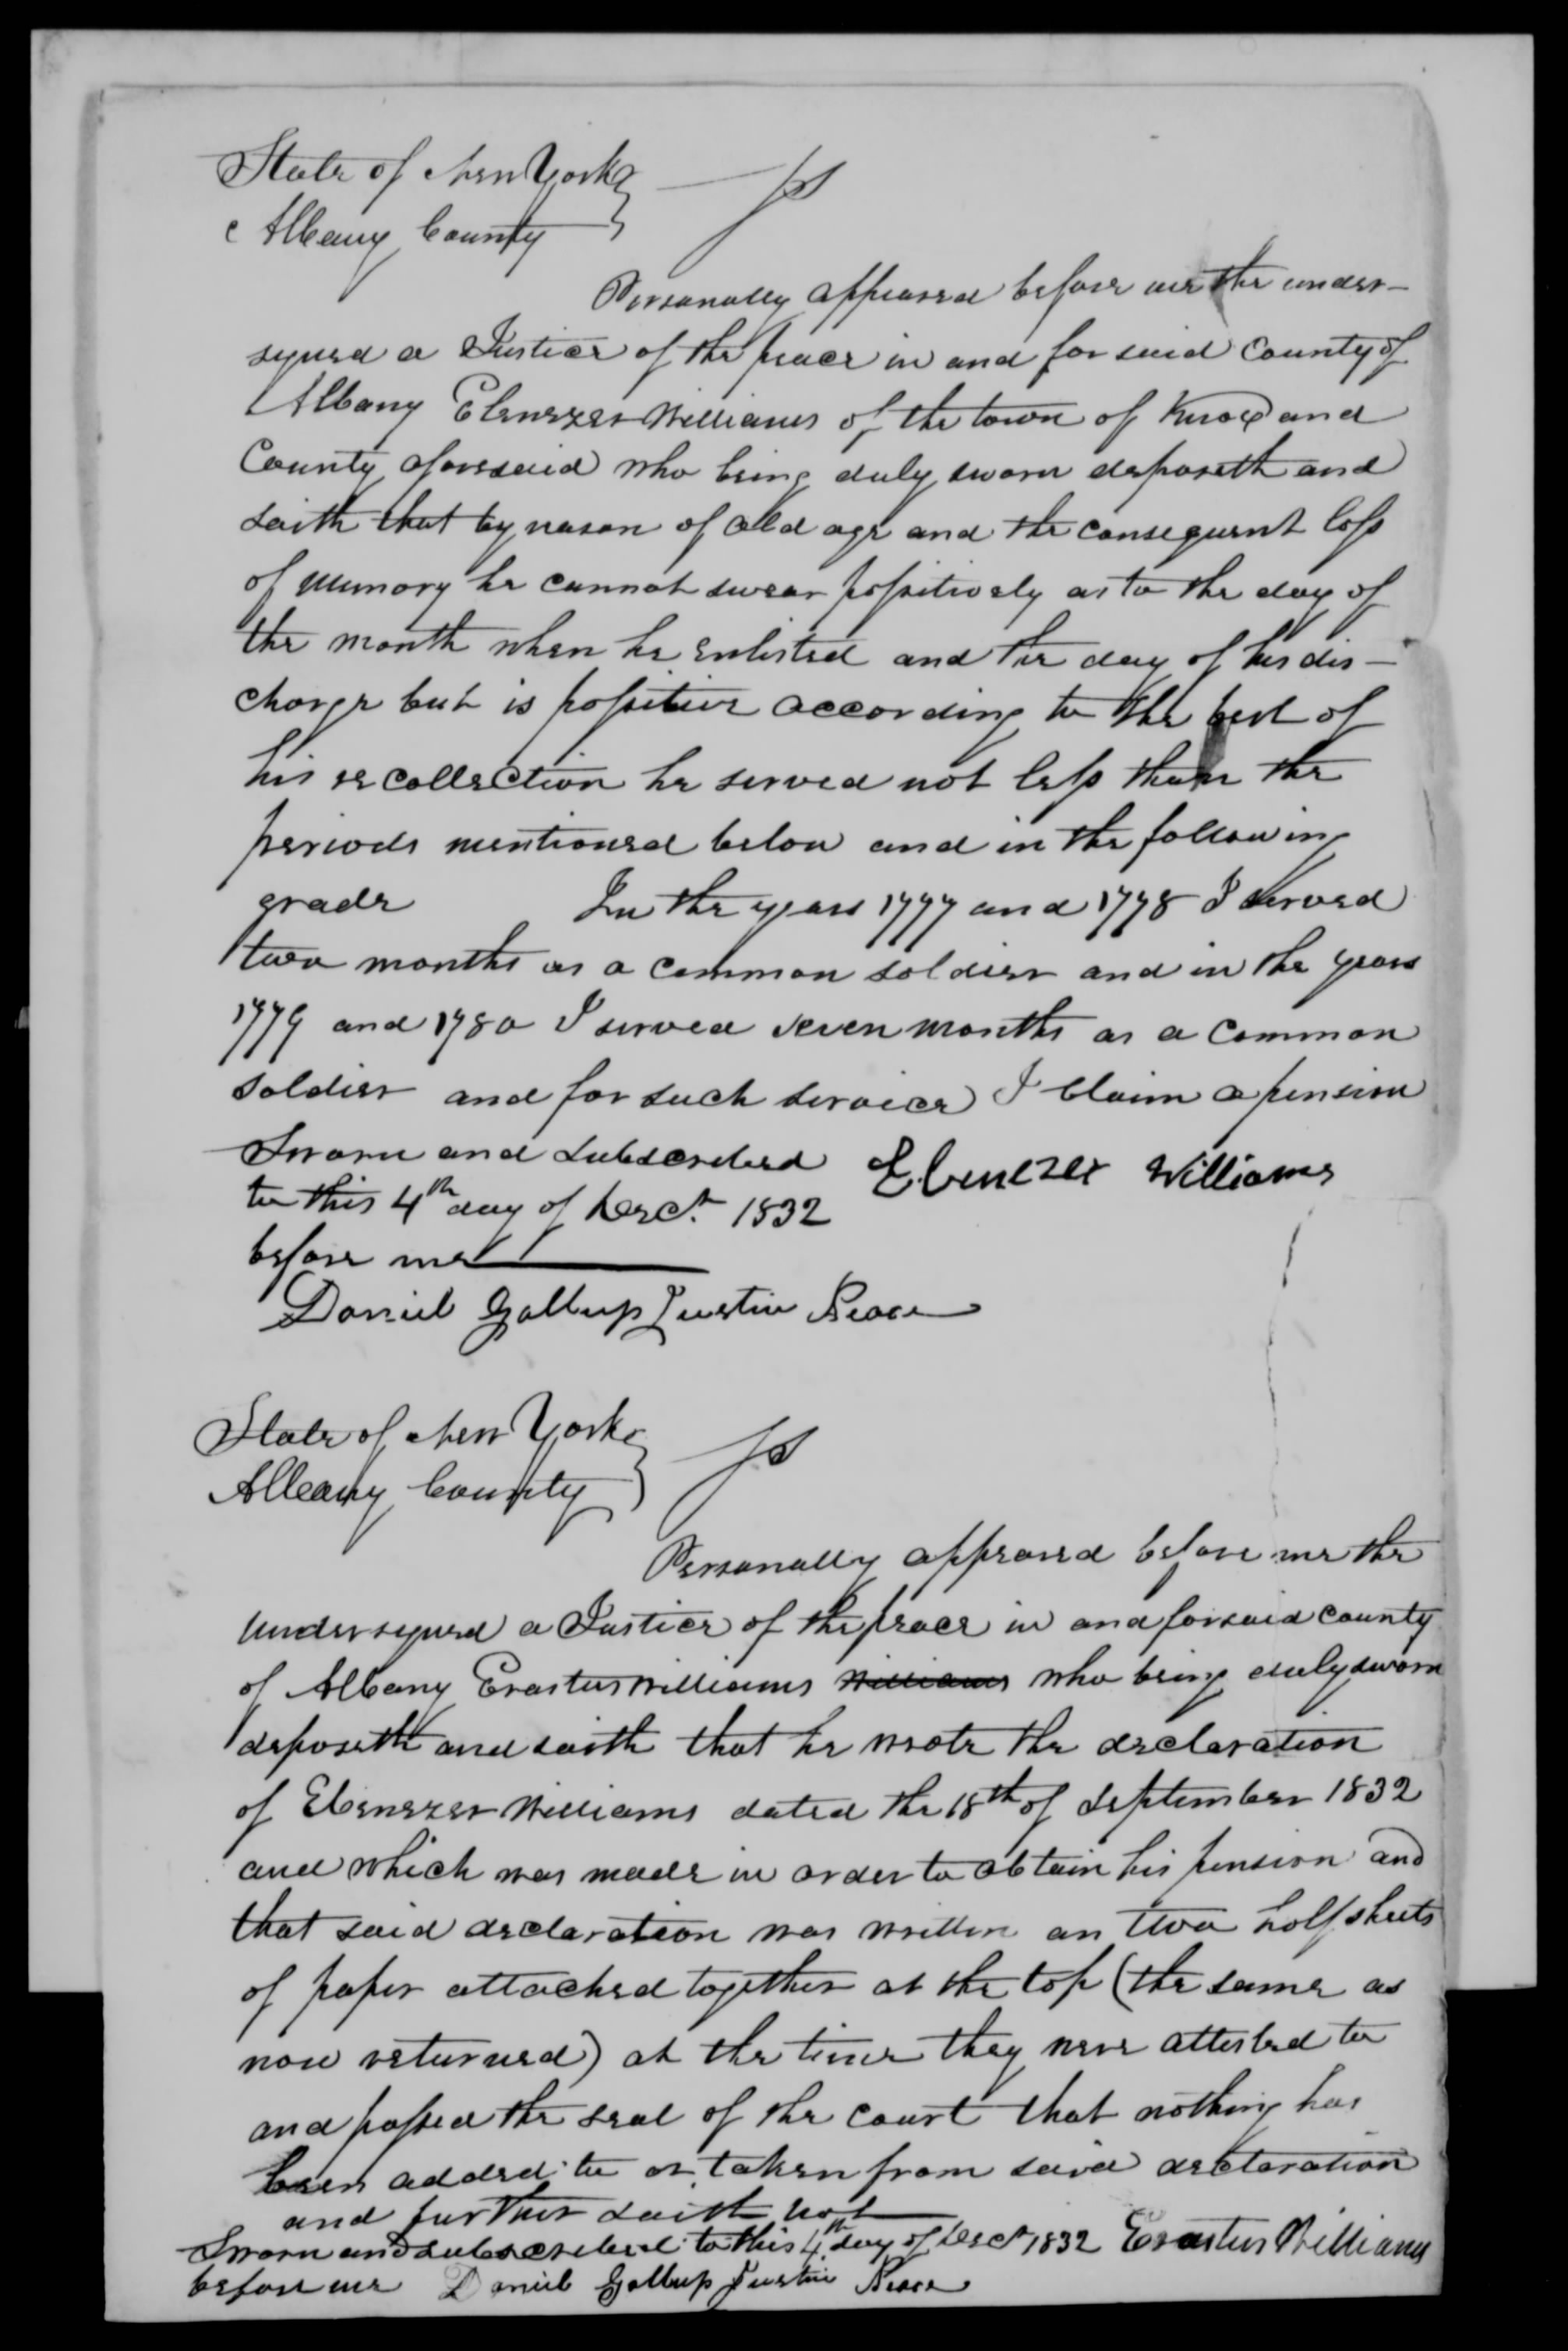 State of New York } ss
Albany County }
Personally appeared before me the under-
signed a Justice of the peace in and for said County of
Albany Ebenezer Williams of the town of Knox and
County aforesaid who being duly sworn deposeth and
saith that by reason of old age and the consequent loss
of memory he cannot swear possitively as to the day of
the month when he enlisted and the day of his dis-
charge but is possitive according to the best of
his recollection he served not less than the
periods mentioned below and in the following
grade In the years 1777 and 1778 I served
two months as a common soldier and in the years
1779 and 1780 I served seven months as a common
soldier and for such service I claim a pension
Sworn and subscribed Ebenezer Williams
to this 4th day of Dect. 1832
before me
Daniel Gallup Justice Peace
State of New York } ss
Albany County }
Personally appeared before me the
undersigned a Justice of the peace in and for said county
of Albany Erastus Williams Williams who being duly sworn
deposeth and saith that he wrote the declaration
of Ebenezer Williams dated the 18th of September 1832
and which was made in order to obtain his pension and
that said declaration was written on two half sheets
of paper attached together at the top (the same as
now returned) at the time they were attested to
and passed the seal of the court that nothing has
been added to or taken from said declaration
and further saith not
Sworn and subscribed to this 4th day of Dect 1832 Erastus Williams
before me Daniel Gallup Justice Peace